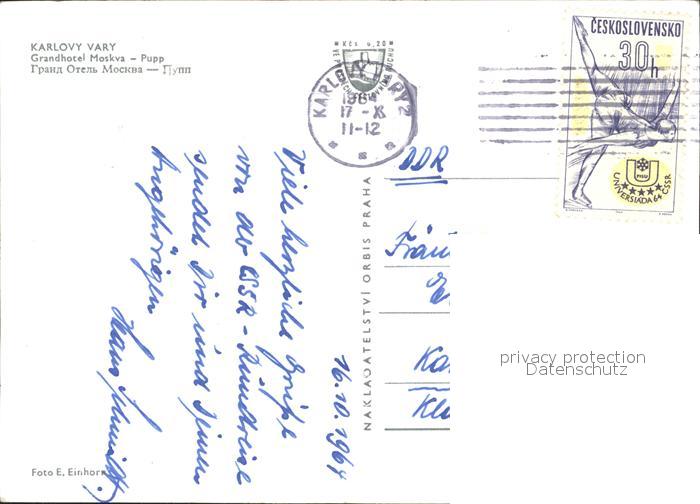 KARLOVY VARY
Grandhotel Moskva – Pupp
Гранд Отель Москва — Пупп
Kčs 0,20
KARLOVY VARY 2
1964
17 -X
11-12
ČESKOSLOVENSKO
30h
UNIVERSIÁDA 64 ČSSR
DDR
16.10.1964
Viele herzliche Grüße
von der ČSSR-Rundreise
sendet Dir und Deinen
Angehörigen
Hans Schmidt.
NAKLADATELSTVÍ ORBIS PRAHA
privacy protection
Datenschutz
Foto E. Einhorn